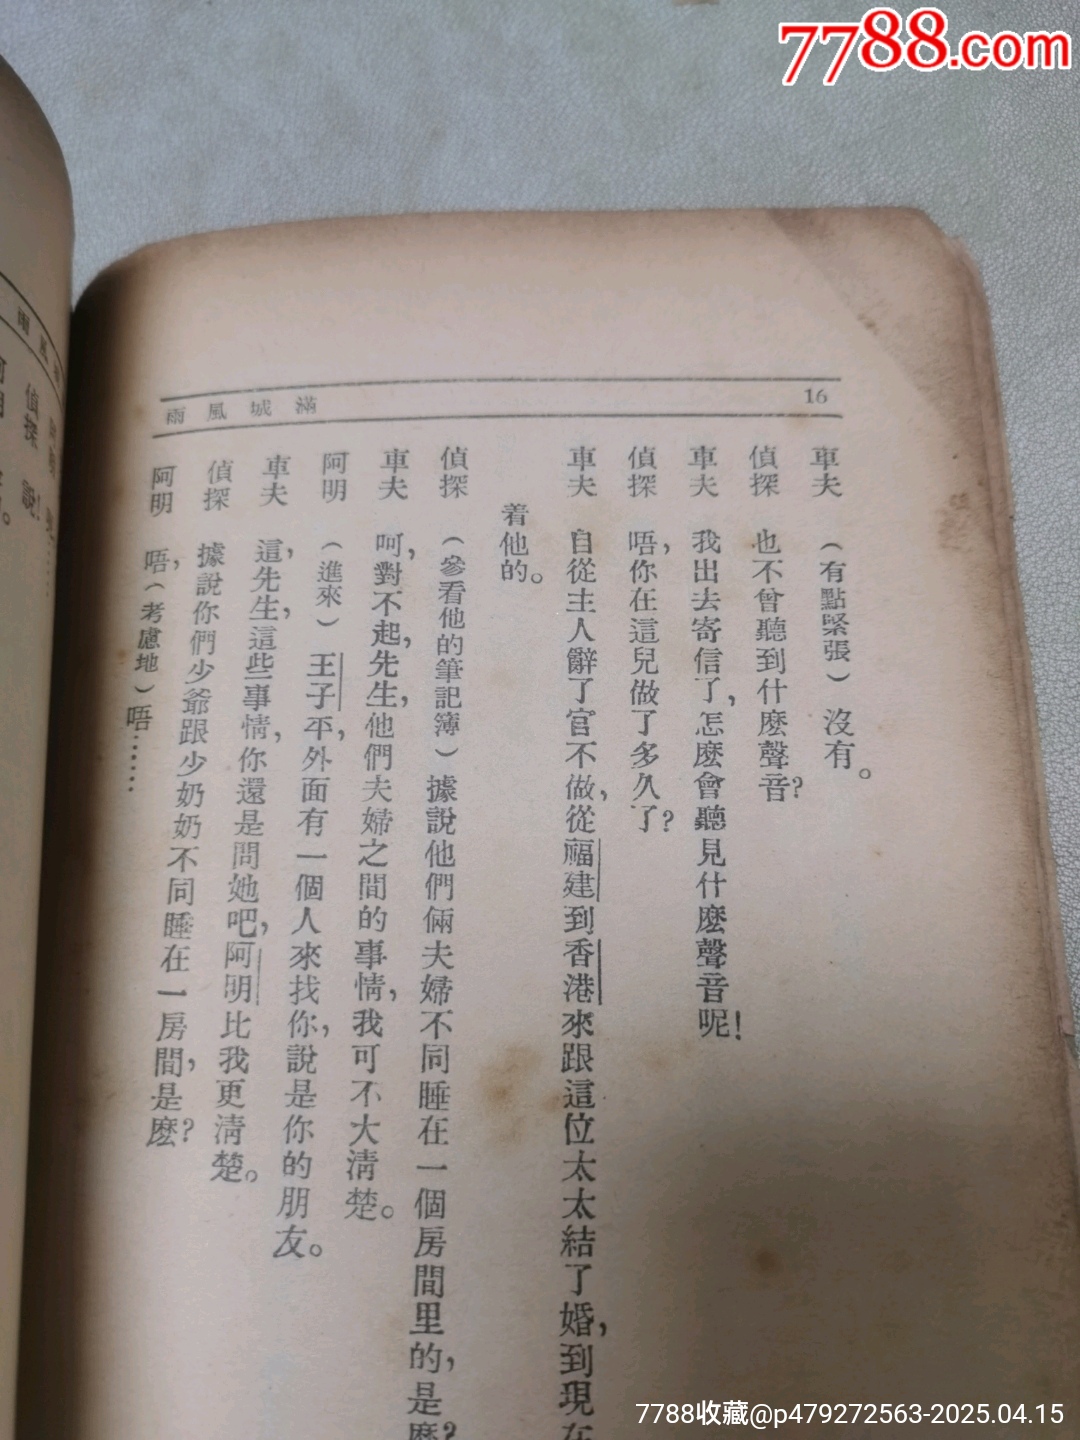 7788.com
16
滿城風雨
車夫 （有點緊張）沒有。
偵探 也不曾聽到什麼聲音？
車夫 我出去寄信了，怎麼會聽見什麼聲音呢！
偵探 唔，你在這兒做了多久了？
車夫 自從主人辭了官不做，從福建到香港來跟這位太太結了婚，到現在
着他的。
偵探 （參看他的筆記簿）據說他們倆夫婦不同睡在一個房間里的，是麼？
車夫 呵，對不起，先生，他們夫婦之間的事情，我可不大清楚。
阿明 （進來）王子平，外面有一個人來找你，說是你的朋友。
車夫 這，先生，這些事情，你還是問她吧，阿明比我更清楚。
偵探 據說你們少爺跟少奶奶不同睡在一房間，是麼？
阿明 唔，（考慮地）唔……
風雨
偵探 說！
7788收藏@p479272563-2025.04.15